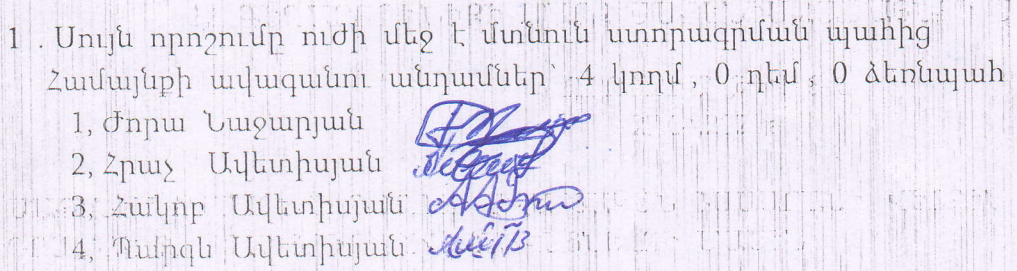 1 . Սույն որոշումը ուժի մեջ է մտնում ստորագրման պահից
Համայնքի ավագանու անդամներ՝ 4 կողմ, 0 դեմ, 0 ձեռնպահ
1, Ժորա Նաջարյան
2, Հրաչ Ավետիսյան
3, Հակոբ Ավետիսյան
4, Պարգև Ավետիսյան